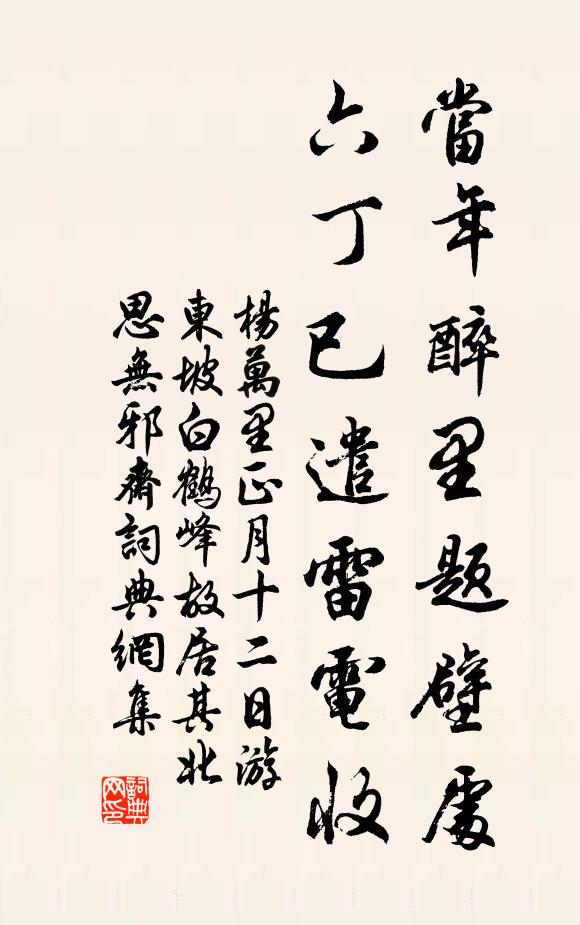 當年醉里題壁處
六丁已遣雷電收
楊萬里正月十二日游
東坡白鶴峰故居其北
思無邪齋詞典網集
詞典
网印